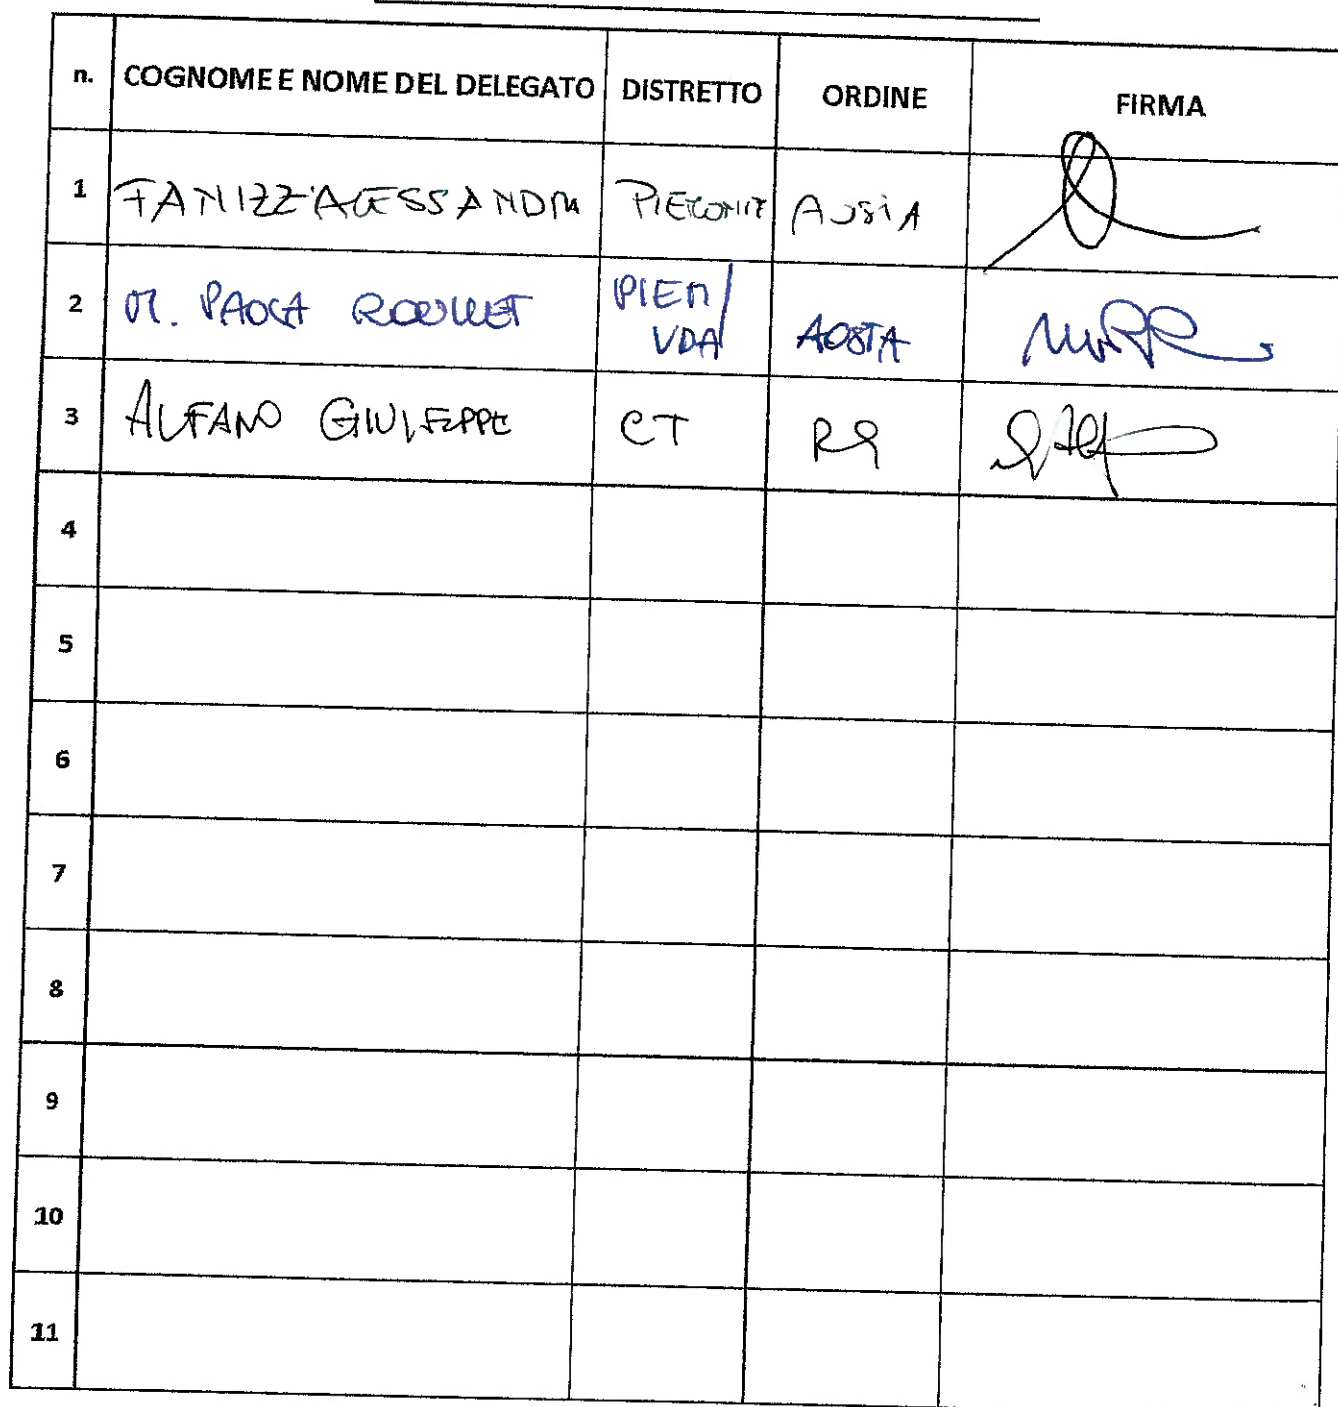 n. COGNOME E NOME DEL DELEGATO DISTRETTO ORDINE FIRMA
1 FANIZZ'ALESSANDRA PIEMONTE AOSTA
2 M. PAOLA ROULLET PIEM/ VDA AOSTA
3 ALFANO GIUSEPPE CT RG
4
5
6
7
8
9
10
11